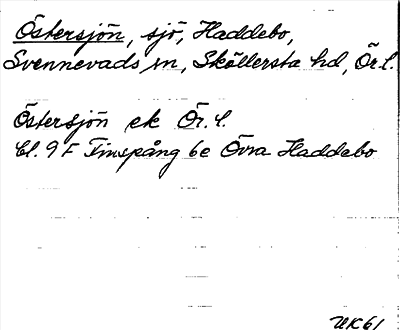 Östersjön, sjö, Haddebo,
Svennevads sn, Sköllersta hd, Ör.l.
Östersjön ek Ör.l.
Bl. 9F Finspång 6e Övra Haddebo
UK61